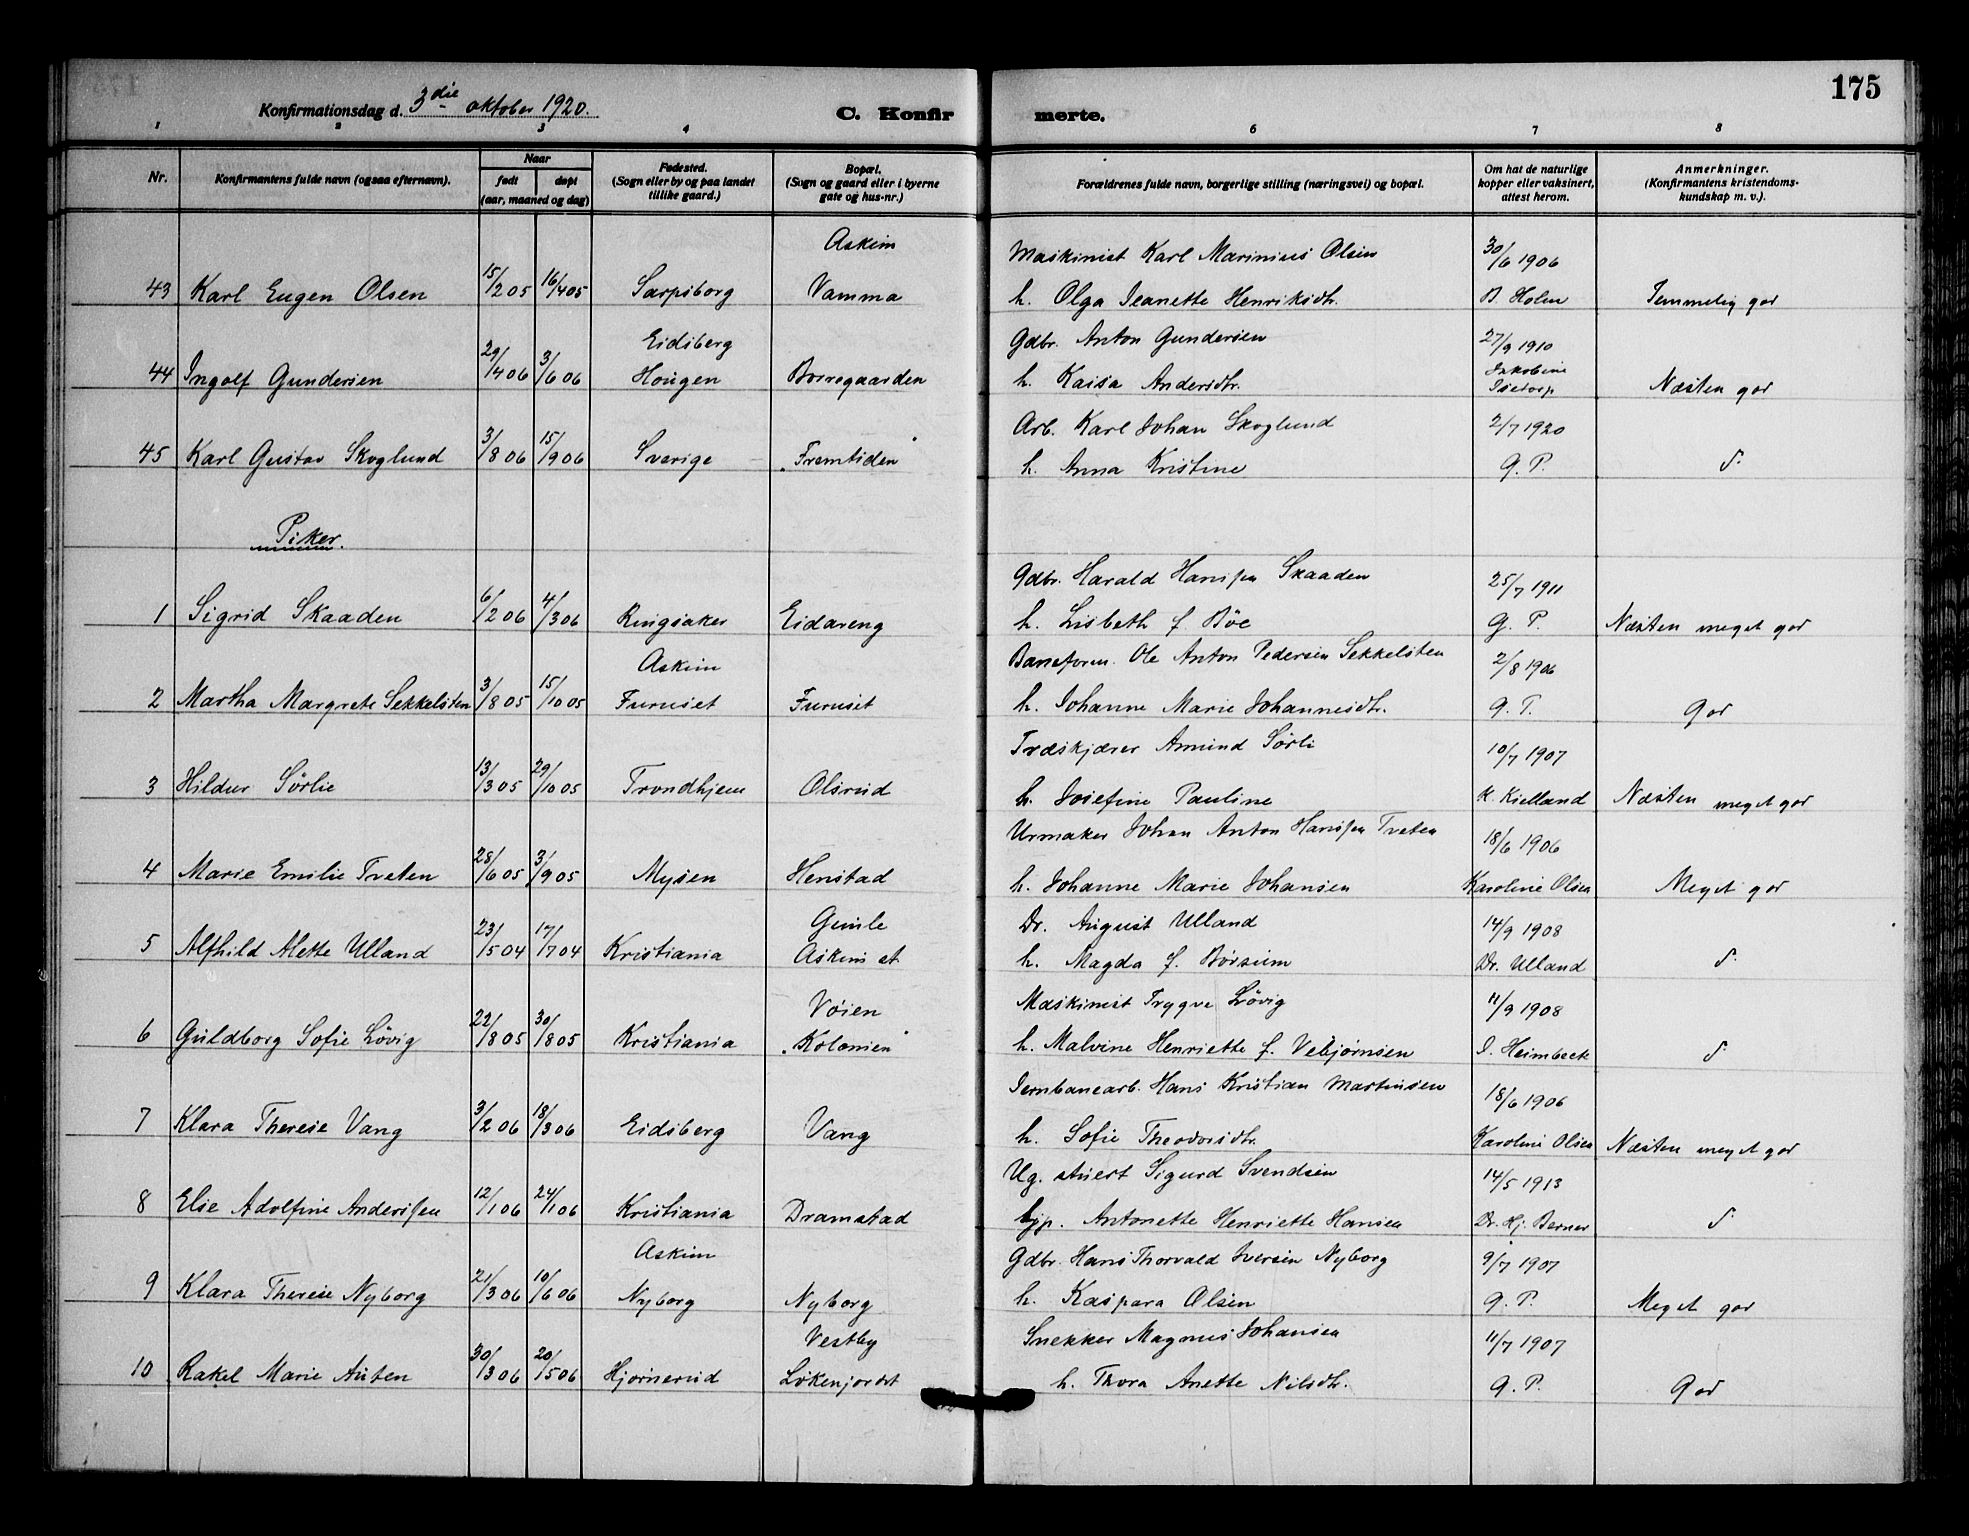 175
Konfirmationsdag d. 3die oktober 1920.
C. Konfir
merte.
1 2 3 4 6 7 8
Nr.
Konfirmantens fulde navn (ogsaa efternavn).
Naar
født
døpt
(aar, maaned og dag)
Fødested.
(Sogn eller by og paa landet
tillike gaard.)
Bopæl.
(Sogn og gaard eller i byerne
gate og hus-nr.)
Forældrenes fulde navn, borgerlige stilling (næringsvei) og bopæl.
Om hat de naturlige
kopper eller vaksinert,
attest herom.
Anmerkninger.
(Konfirmantens kristendoms-
kundskap m. v.).
Askim Maskinist Karl Marinius Olsen 30/6 1906
43 Karl Eugen Olsen 15/2 05 16/4 05 Sarpsborg Vamma h. Olga Jeanette Henriksdtr. B. Holen Temmelig god
Eidsberg Gdbr. Anton Gundersen 27/9 1910
44 Ingolf Gundersen 29/4 06 3/6 06 Hougen Borregaarden h. Kaisa Andersdtr. Jakobine Næsten god
Arb. Karl Johan Skoglund 2/7 1920
45 Karl Gustav Skoglund 3/8 06 15/9 06 Sverige "Fremtiden" h. Anna Kristine G. P. d.
Piker.
Gdbr. Harald Hansen Skaaden 25/7 1911
1 Sigrid Skaaden 6/2 06 4/3 06 Ringsaker Eidareng h. Lisbeth f. Böe G. P. Næsten meget god
Askim Baneform. Ole Anton Pedersen Sekkelsten 2/8 1906
2 Martha Margrete Sekkelsten 3/8 05 15/10 05 Furuset Furuset h. Johanne Marie Johannesdtr. G. P. God
Træskjærer Amund Sørli 10/7 1907
3 Hildur Sørlie 13/3 05 29/10 05 Trondhjem Olsrud h. Josefine Pauline K. Kielland Næsten meget god
Urmaker Johan Anton Hansen Tveten 18/6 1906
4 Marie Emilie Tveten 28/6 05 3/9 05 Mysen Henstad h. Johanne Marie Johansen Karoline Olsen Meget god
Gimle Dr. August Ulland 14/9 1908
5 Alfhild Alette Ulland 23/5 04 17/7 04 Kristiania Askim st. h. Magda f. Børsum Dr. Ulland d.
Vøien Maskinist Trygve Løvig 11/9 1908
6 Guldborg Sofie Løvig 22/8 05 30/8 05 Kristiania "Kolonien" h. Malvine Henriette f. Vebjørnsen Heimbeck d.
Jernbanearb. Hans Kristian Martinsen 18/6 1906
7 Klara Therese Vang 3/2 06 18/3 06 Eidsberg Vang h. Sofie Theodorsdtr. Karoline Olsen Næsten meget god
Ug. stuert Sigurd Svendsen 14/5 1913
8 Else Adolfine Andersen 12/1 06 24/1 06 Kristiania Dramstad Antonette Henriette Hansen Dr. Hj. Berner d.
Askim Gdbr. Hans Thorvald Iversen Nyborg 9/7 1907
9 Klara Therese Nyborg 21/3 06 10/6 06 Nyborg Nyborg h. Kaspara Olsen G. P. Meget god
Vestby Snekker Magnus Johansen 11/7 1907
10 Rakel Marie Auten 30/3 06 20/5 06 Hjørnerud Løkenjordet h. Thora Anette Nilsdtr. G. P. God